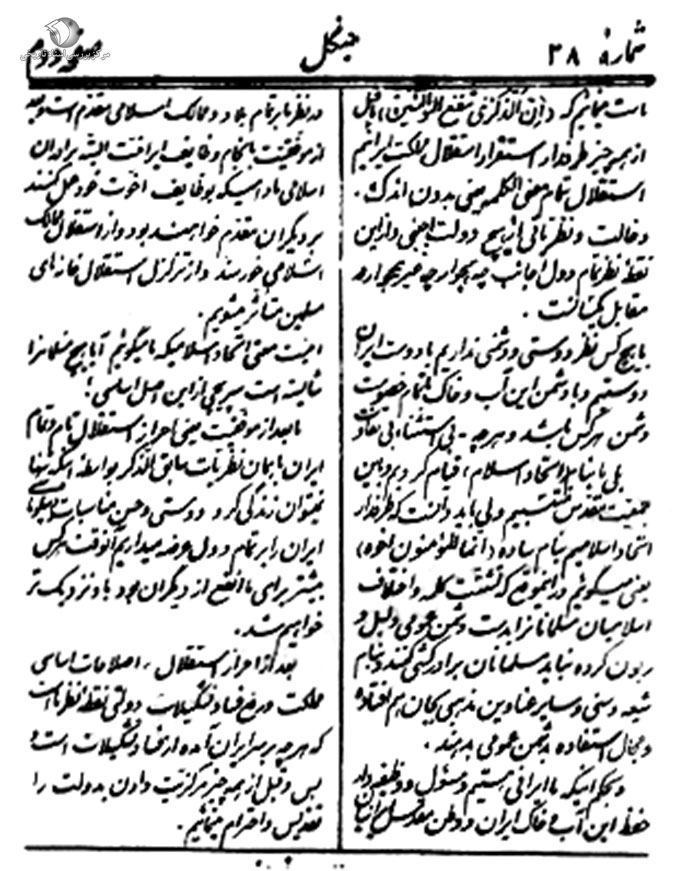 شمارهٔ ۲۸
جنگل
صفحه دوم
مرکز بررسی اسناد تاریخی
است مینمائیم که (ان الذکری تنفع المؤمنین) ما قبل
از هر چیز طرفدار استقرار استقلال مملکت ایرانیم
استقلال بتمام معنی الکلمه یعنی بدون اندک
دخالت و نظر تأتی از هیچ دولت اجنبی و از این
نقطه نظر تمام دول اجانب چه همجوار چه غیر همجوار در
مقابل یکسانست .
با هیچ کس نظر دوستی و دشمنی نداریم با دوست ایران
دوستیم و با دشمن این آب و خاک بتمام خصومت
دشمن هر کس باشد و هر چه - بی استثناء بی تفاوت
بلی ما بنام اتحاد اسلام ، قیام کردیم و باین
جمعیت مقدس منتسبیم ولی باید دانست که طرفدار
اتحاد اسلامیم بتمام ساده (انما المؤمنون اخوه)
یعنی میگوئیم در این موقع که تشتت کلمه و اختلاف
اسلامیان مسلمانان را بدست دشمن عمومی ذلیل و
زبون کرده نباید مسلمانان برادرکشی کنند و بنام
شیعه و سنی و سایر عناوین مذهبی بجان هم افتاده
و مجال استفاده بدشمن عمومی بدهند .
و بحکم اینکه ما ایرانی هستیم و مسئول و وظیفه دار
حفظ این آب و خاک ایران و وطن مقدس ایرانیان
در نظر ما بر تمام بلاد و ممالک اسلامی مقدم است و بعد
از موفقیت بانجام وظایف ایرانیت البته برادران
اسلامی ما در اینکه بوظایف اخوت خود عمل کنند
بر دیگران مقدم خواهند بود و از استقلال ممالک
اسلامی خورسند و از تزلزل استقلال خانه های
مسلمین متأثر میشویم .
اینست معنی اتحاد اسلامی که ما میگوئیم آیا هیچ مسلمانرا
شایسته است سرپیچی از این اصل اساسی ؟
ما بعد از موفقیت یعنی احراز استقلال تام و تمام
ایران با همان نظریات سابق الذکر بواسطه اینکه تنها
نمیتوان زندگی کرد دوستی و حسن مناسبات
ایران را بر تمام دول عرضه میداریم آنوقت هر کس
بیشتر برای ما انفع از دیگران بود باو نزدیک تر
خواهیم شد .
بعد از احراز استقلال ، اصلاحات اساسی
مملکت و رفع فساد تشکیلات دولتی نقطه نظر ما است
که هر چه بر سر ایران آمده از فساد تشکیلات است
پس و قبل از همه چیز مرکزیت دادن بدولت را
تقدیس و احترام مینمائیم .